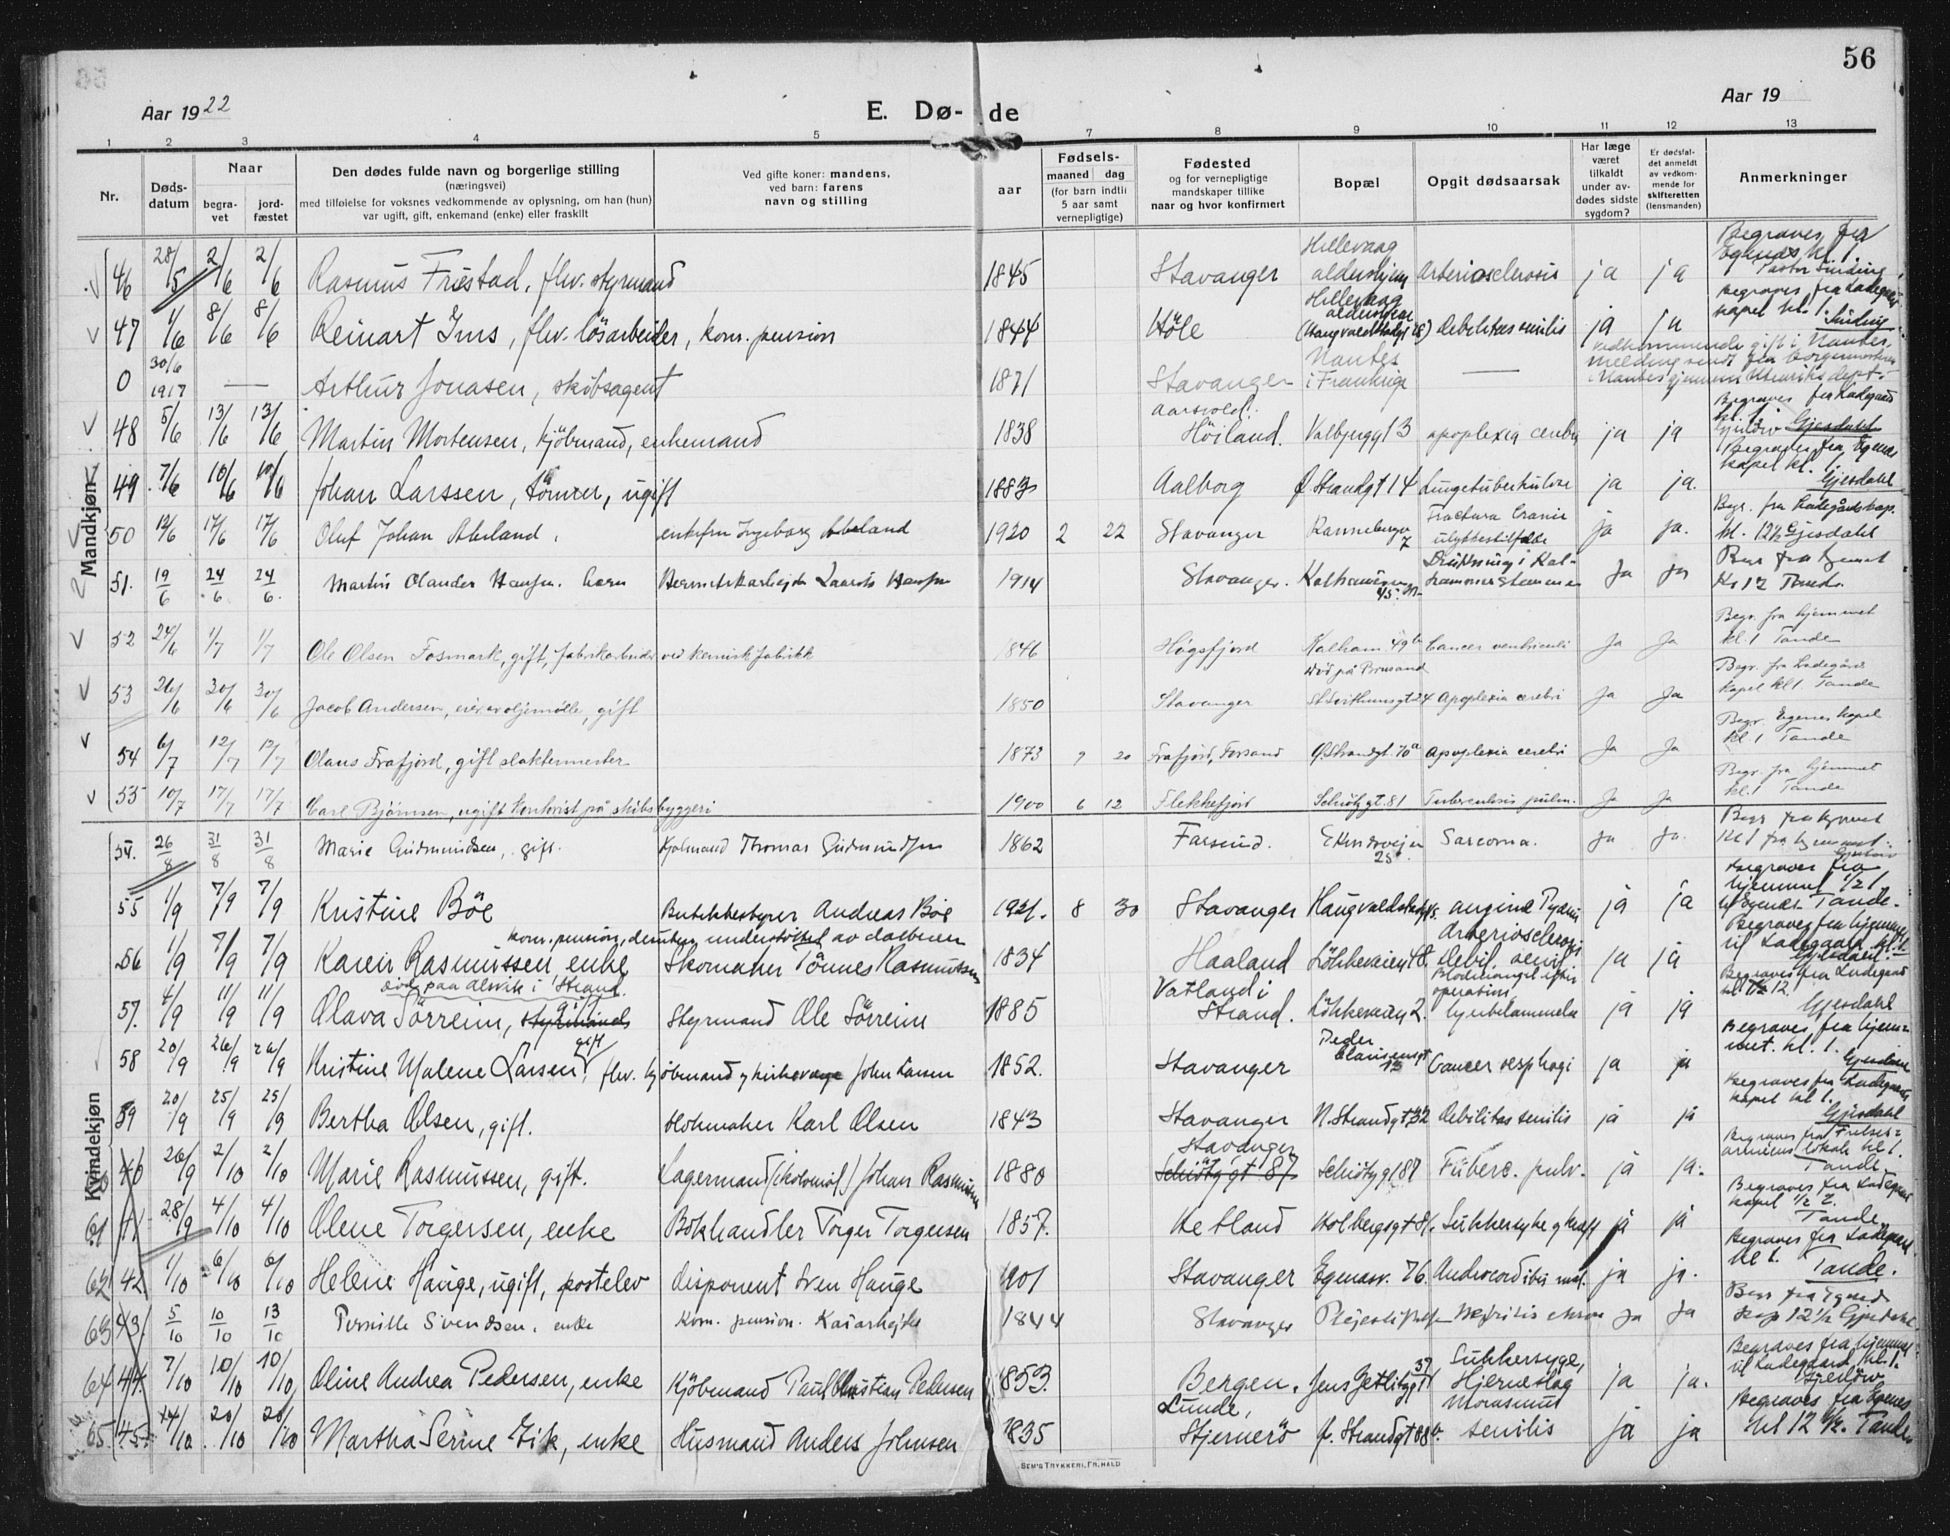 56
Aar 1922
E. Dø- de
Aar 19
1 2 3 4 5 7 8 9 10 11 12 13
Nr.
Døds-
datum
Naar
begra-
vet
jord-
fæstet
Den dødes fulde navn og borgerlige stilling
(næringsvei)
med tilføielse for voksnes vedkommende av oplysning, om han (hun)
var ugift, gift, enkemand (enke) eller fraskilt
Ved gifte koner: mandens,
ved barn: farens
navn og stilling
aar
Fødsels-
maaned dag
(for barn indtil
5 aar samt
vernepligtige)
Fødested
og for vernepligtige
mandskaper tillike
naar og hvor konfirmert
Bopæl
Opgit dødsaarsak
Har læge
været
tilkaldt
under av-
dødes sidste
sygdom?
Er dødsfal-
det anmeldt
av vedkom-
mende for
skifteretten
(lensmanden)
Anmerkninger
Mandkjøn
46 28/5 2/6 2/6 Rasmus Frestad, flv. styrmand 1845 Stavanger Hillevaag aldershjem Arteriosclerosis ja ja Begraves fra Egenæs kl. 1 Pastor Sinding
47 1/6 8/6 8/6 Reinart Ims, flv. lösarbeider, kom. pension 1844 Höle Hillevaag aldershjem Debilitas senilis ja ja Begraves fra Ladegaards kapel kl. 1. Sinding
0 30/6 1917 — Arthur Jonasen, skibsagent 1871 Stavanger Nantes i Frankrige — Vedkommende gift i Nantes, melding sendt fra borgermesteren i Nantes gjennem Utenriksdept.
48 5/6 13/6 13/6 Martin Mortensen, kjöbmand, enkemand 1838 Aarsvold, Höiland. Valbjergt 3 apoplexia cerebri ja ja Begraves fra Ladegaard kl. 1. Gjesdahl
49 7/6 10/6 10/6 Johan Larssen, tömrer, ugift 1883 Aalborg Ø Strandgt 14 Lungetuberkulose ja ja. Begraves fra Egenæs kapel kl. 1 Gjesdahl
50 12/6 17/6 17/6 Oluf Johan Abeland, enkefru Ingeborg Abeland 1920 2 22 Stavanger Rannebergv 7 Fractura Cranii ulykkestilfælde ja ja. Begr. fra Ladegårdskap. kl. 12½ Gjesdahl
51. 19/6 24/6 24/6. Martin Olander Hansen. barn 1914 Stavanger. Kalhammervn 45 Drukning i Kalhammerstemmen Ja Ja Begr fra hjemmet Kl 12 Tande.
52 24/6 1/7 1/7 Ole Olsen Fosmark, gift, fabrikarbeider ved kemisk fabrikk 1846 Høgsfjord Kalham. 49 b Cancer ventriculi Ja Ja Begr. fra hjemmet kl. 1 Tande
53 26/6 30/6 30/6 Jacob Andersen, eier av oljemølle, gift 1850 Stavanger St Svithunsgt 24 Apoplexia cerebri Ja Ja Begr. fra Ladegårds kapel kl 1. Tande
54 6/7 12/7 12/7 Olaus Frafjord, gift slaktermester 1873 9 20 Frafjord, Forsand Ø Strandgt. 70a Apoplexia cerebri Ja Ja Begr. Egenes kapel kl 1 Tande
55 10/7 17/7 17/7 Carl Bjørnsen, ugift kontorist på skibsbyggeri 1900 6 12 Flekkefjord Schiøtzgt. 81 Tuberculosis pulm. Ja Ja Begr. fra hjemmet kl. 1 Tande
Kvindekjøn
54. 26/8 31/8 31/8 Marie Gudmundsen, gift. Kjøbmand Thomas Gudmundsen 1862 Farsund. Ekundveien 25 Sarcoma. ja ja. Begr fra hjemmet Kl 1
55 1/9 7/9 7/9 Kristine Böe Butikkbestyrer Andreas Böe 1921. 8 30 Stavanger ja ja Begraves fra hjemmet ½ 1 Tande.
56 1/9 7/9 7/9 Karen Rasmussen, enke Skomaker Tönnes Rasmussen 1834 Haaland Arteriosclerosis debil. senil. ja ja Begraves fra hjemmet til Ladegaard kl. 1. Gjesdahl.
57. 4/9 11/9 11/9 död paa Alsvik i Strand Olava Sörreim, gift Styrmand Ole Sörreim 1885 Vatland i Strand. Lökkeveien 2. ja ja Begraves fra Ladegaard kl 12. Gjesdahl
58 20/9 26/9 26/9 Kristine Malene Larsen, gift flv. kjöbmand John Larsen 1852. Stavanger Peder Clausensgt 13 Cancer oesophagi ja ja Begraves fra hjemmet. kl. 1. Gjesdahl
59 20/9 25/9 25/9 Bertha Olsen, gift. Karl Olsen 1843 Stavanger N. Strandgt 32 Debilitas senilis ja ja Begraves fra Ladegaards kapel kl 1. Gjesdahl
60 26/9 2/10 2/10 Marie Rasmussen, gift. Lagermand Johan Rasmussen 1880 Stavanger Schiötzgt 87 Schiötzgt 87 Tuberc. pulm. ja ja. Begraves fra Frelsesarmeens lokale kl 1. Tande
61 28/9 4/10 4/10 Olene Torgersen, enke Bokhandler Torger Torgersen 1857. Hetland Holbergsgt Sukkersyke og kræft ja ja Begraves fra Ladegaard kapel ½ 2. Tande
62 42 1/10 6/10 6/10 Helene Hauge, ugift, postelev disponent Sven Hauge 1901 Stavanger Egenæsv. 76. ja ja. Begraves fra Ladegaard kl 1. Tande.
63 43 5/10 10/10 13/10 Pernille Svendsen, enke Kom. pension. Kaiarbejder 1844 Stavanger Nefritis chron ja ja kap 12½ Gjesdahl
64 44 7/10 10/10 10/10 Oline Andrea Pedersen, enke Kjöbmand Paul Christian Pedersen 1853. Bergen. Jens Zetlitzgt 37 Sukkersyge, Hjerneslag ja ja. Begraves fra hjemmet til Ladegaard kl. 1.
65 45 14/10 20/10 20/10 Martha Serine Eik, enke Husmand Anders Johnsen 1835 Lunde, Stjernerö Ø. Strandgt 88 b. Marasmus senilis ja ja Begraves fra Egenes kl 12 ½. Tande
SEM'S TRYKKERI, FR.HALD